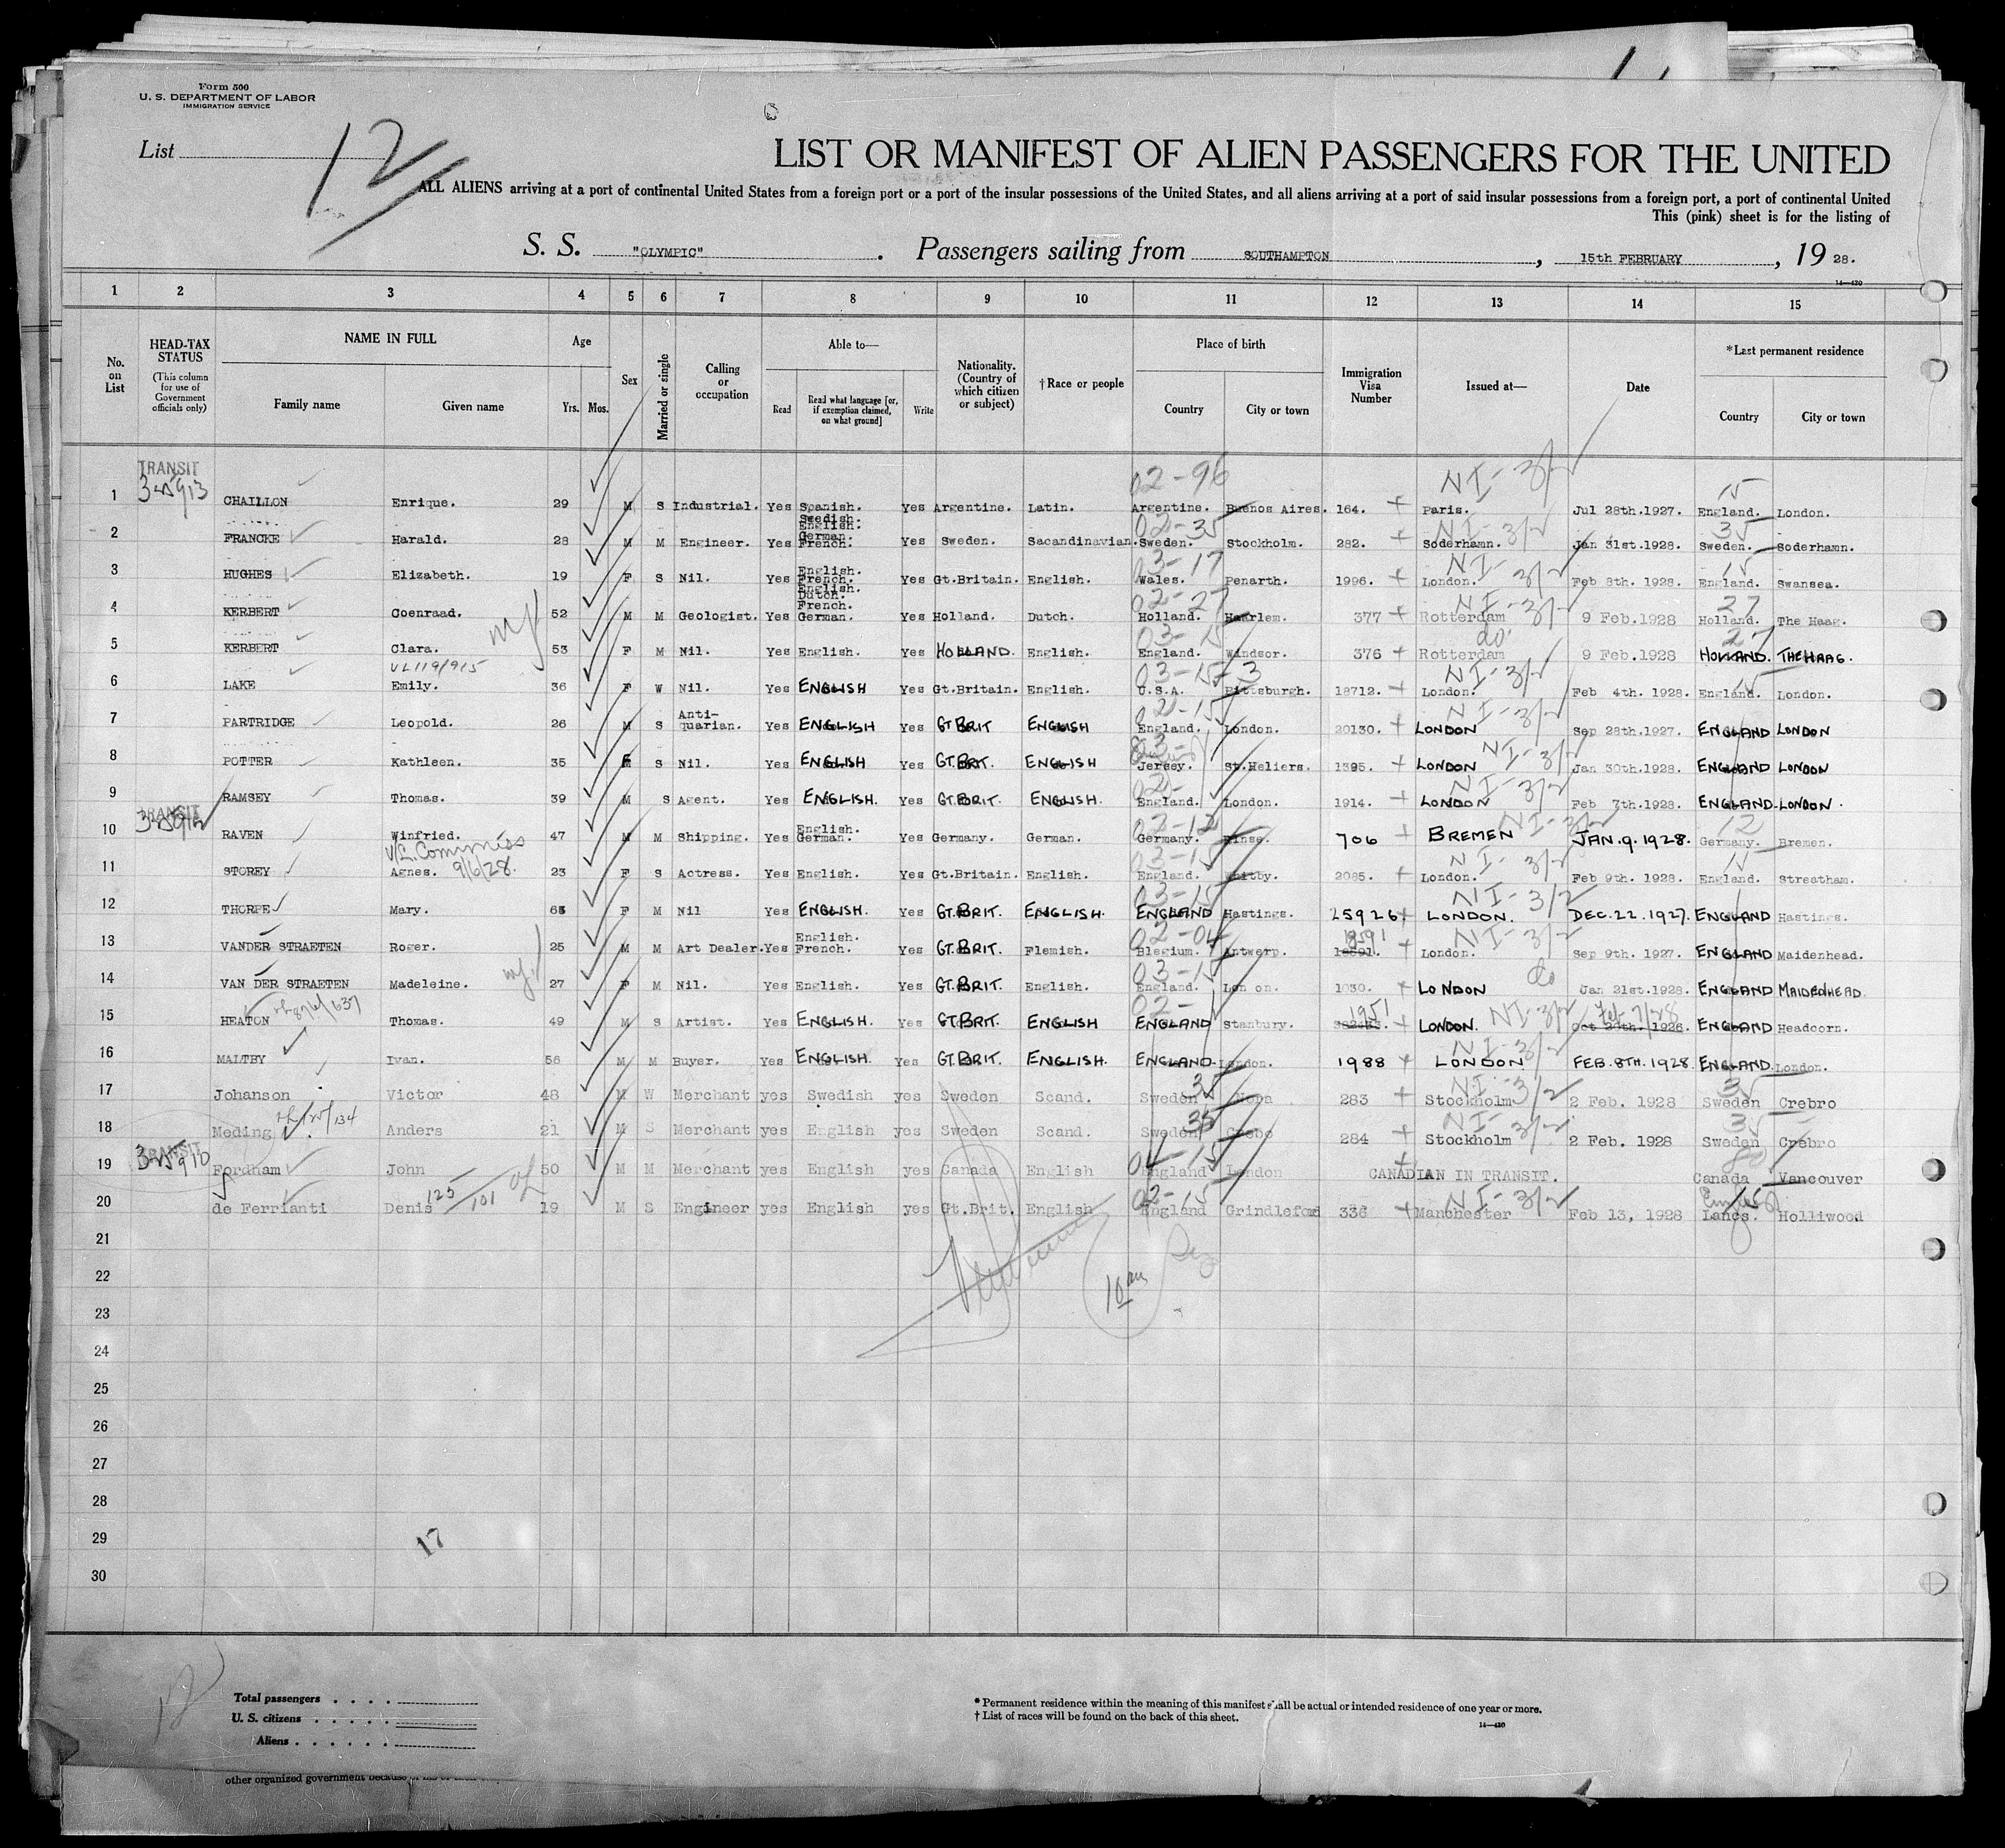 Form 500
U. S. DEPARTMENT OF LABOR
IMMIGRATION SERVICE
List 12
LIST OR MANIFEST OF ALIEN PASSENGERS FOR THE UNITED
ALL ALIENS arriving at a port of continental United States from a foreign port or a port of the insular possessions of the United States, and all aliens arriving at a port of said insular possessions from a foreign port, a port of continental United
This (pink) sheet is for the listing of
S. S. "OLYMPIC". Passengers sailing from SOUTHAMPTON, 15th FEBRUARY, 19 28.
14—430
1 2 3 4 5 6 7 8 9 10 11 12 13 14 15
No. on List
HEAD-TAX STATUS (This column for use of Government officials only)
NAME IN FULL Family name Given name
Age Yrs. Mos.
Sex
Married or single
Calling or occupation
Able to— Read Read what language [or, if exemption claimed, on what ground] Write
Nationality. (Country of which citizen or subject)
†Race or people
Place of birth Country City or town
Immigration Visa Number
Issued at—
Date
*Last permanent residence Country City or town
TRANSIT 02-96 NI-3/2 15
1 CHAILLON Enrique. 29 M S Industrial. Yes Spanish. Yes Argentine. Latin. Argentine. Buenos Aires. 164. Paris. Jul 28th.1927. England. London.
Swedish. English. 02-35 NI-3/2 35
2 FRANCKE Harald. 28 M M Engineer. Yes German. French. Yes Sweden. Sacandinavian. Sweden. Stockholm. 282. Soderhamn. Jan 31st.1928. Sweden. Soderhamn.
03-17 NI-3/2 15
3 HUGHES Elizabeth. 19 F S Nil. Yes English. French. Yes Gt.Britain. English. Wales. Penarth. 1996. London. Feb 8th. 1928. England. Swansea.
English. Dutch. 02-27 NI-3/2 27
4 KERBERT Coenraad. 52 M M Geologist. Yes French. German. Yes Holland. Dutch. Holland. Haarlem. 377 Rotterdam 9 Feb.1928 Holland. The Haag.
03-15 do. 27
5 KERBERT Clara. 53 F M Nil. Yes English. Yes HOLLAND. English. England. Windsor. 376 Rotterdam 9 Feb.1928 HOLLAND. THE HAAG.
VL119/915 03-15-3 NI-3/2 15
6 LAKE Emily. 36 F W Nil. Yes ENGLISH Yes Gt.Britain. English. U.S.A. Pittsburgh. 18712. London. Feb 4th. 1928. England. London.
02-15 NI-3/2
7 PARTRIDGE Leopold. 26 M S Anti-quarian. Yes ENGLISH Yes GT BRIT ENGLISH England. London. 20130. LONDON Sep 28th.1927. ENGLAND LONDON
NI-3/2
8 POTTER Kathleen. 35 F S Nil. Yes ENGLISH Yes GT.BRIT. ENGLISH Jersey. St.Heliers. 1395. LONDON Jan 30th.1928. ENGLAND LONDON
02- NI-3/2
9 RAMSEY Thomas. 39 M S Agent. Yes ENGLISH. Yes GT.BRIT. ENGLISH. England. London. 1914. LONDON Feb 7th.1928. ENGLAND. LONDON.
TRANSIT 02-12 NI-3/2 12
10 RAVEN Winfried. 47 M M Shipping. Yes English. German. Yes Germany. German. Germany. Rinse. 706 BREMEN JAN.9.1928. Germany. Bremen.
V/L. Commniss 9/6/28. 03-15 NI-3/2 15
11 STOREY Agnes. 23 F S Actress. Yes English. Yes Gt.Britain. English. England. Whitby. 2085. London. Feb 9th. 1928. England. Streatham.
03-15 NI-3/2
12 THORPE Mary. 65 F M Nil Yes ENGLISH. Yes GT.BRIT. ENGLISH. ENGLAND Hastings. 25926. LONDON. DEC.22.1927. ENGLAND Hastings.
02-04 NI-3/2
13 VANDER STRAETEN Roger. 25 M M Art Dealer. Yes English. French. Yes GT.BRIT. Flemish. Blegium. Antwerp. London. Sep 9th. 1927. ENGLAND Maidenhead.
03-15 do
14 VAN DER STRAETEN Madeleine. 27 F M Nil. Yes English. Yes GT.BRIT. English. England. Lon on. 1030. LONDON Jan 21st.1928. ENGLAND MAIDENHEAD.
02- 1951 NI-3/2 Feb 7/28
15 HEATON Thomas. 49 M S Artist. Yes ENGLISH. Yes GT.BRIT. ENGLISH ENGLAND Stanbury. LONDON. Oct 20th. 1926. ENGLAND Headcorn.
NI-3/2
16 MALTBY Ivan. 56 M M Buyer. Yes ENGLISH. Yes GT.BRIT. ENGLISH. ENGLAND. London. 1988 LONDON FEB.8TH.1928 ENGLAND. London.
35 NI-3/2 35
17 Johanson Victor 48 M W Merchant yes Swedish yes Sweden Scand. Sweden Nora 283 Stockholm 2 Feb. 1928 Sweden Crebro
35 NI-3/2 35
18 Meding Anders 21 M S Merchant yes English yes Sweden Scand. Sweden Crebo 284 Stockholm 2 Feb. 1928 Sweden Crebro
TRANSIT 80
19 Fordham John 50 M M Merchant yes English yes Canada English England London CANADIAN IN TRANSIT. Canada Vancouver
125/101 02-15 NI-3/2
20 de Ferrianti Denis 19 M S Engineer yes English yes Gt.Brit. English England Grindleford 336 Manchester Feb 13, 1928 Lancs. Holliwood
21
22
23
24
25
26
27
28
29
17
30
12
Total passengers
U. S. citizens
Aliens
* Permanent residence within the meaning of this manifest shall be actual or intended residence of one year or more.
† List of races will be found on the back of this sheet.
14—430
other organized government because